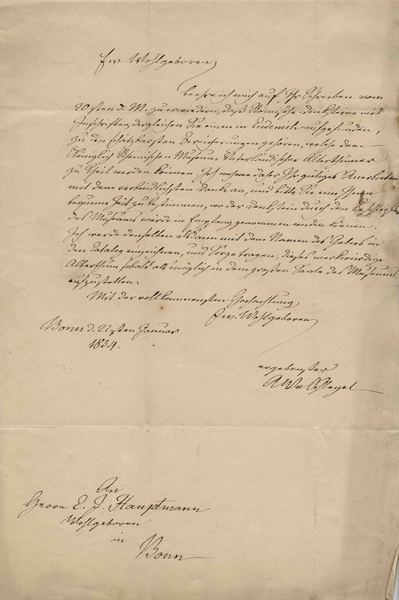 Ew. Wohlgeboren
beehre ich mich auf Ihr Schreiben vom
20sten d. M. zu erwiedern, daß Römische Denksteine mit
Inschriften, dergleichen Sie einen in Endenich aufgefunden,
zu den schätzbarsten Bereicherungen gehören, welche dem
Königlich Rheinischen Museum Vaterländischer Alterthümer
zu Theil werden können. Ich nehme daher Ihr gütiges Anerbieten
mit dem verbindlichsten Danke an, und bitte Sie eine Ihnen
bequeme Zeit zu bestimmen, wo der Denkstein durch den
des Museums würde in Empfang genommen werden können.
Ich werde denselben alsdann mit dem Namen des Gebers in
den Catalog einzeichnen, und Sorge tragen, dieses merkwürdige
Alterthum sobald als möglich in dem großen Saale des Museums
aufzustellen.
Mit der vollkommensten Hochachtung
Ew. Wohlgeboren
Bonn d. 21sten Januar
1834.
ergebenster
AWv Schlegel
An
Herrn E. J. Hauptmann
Wohlgeboren
in
Bonn